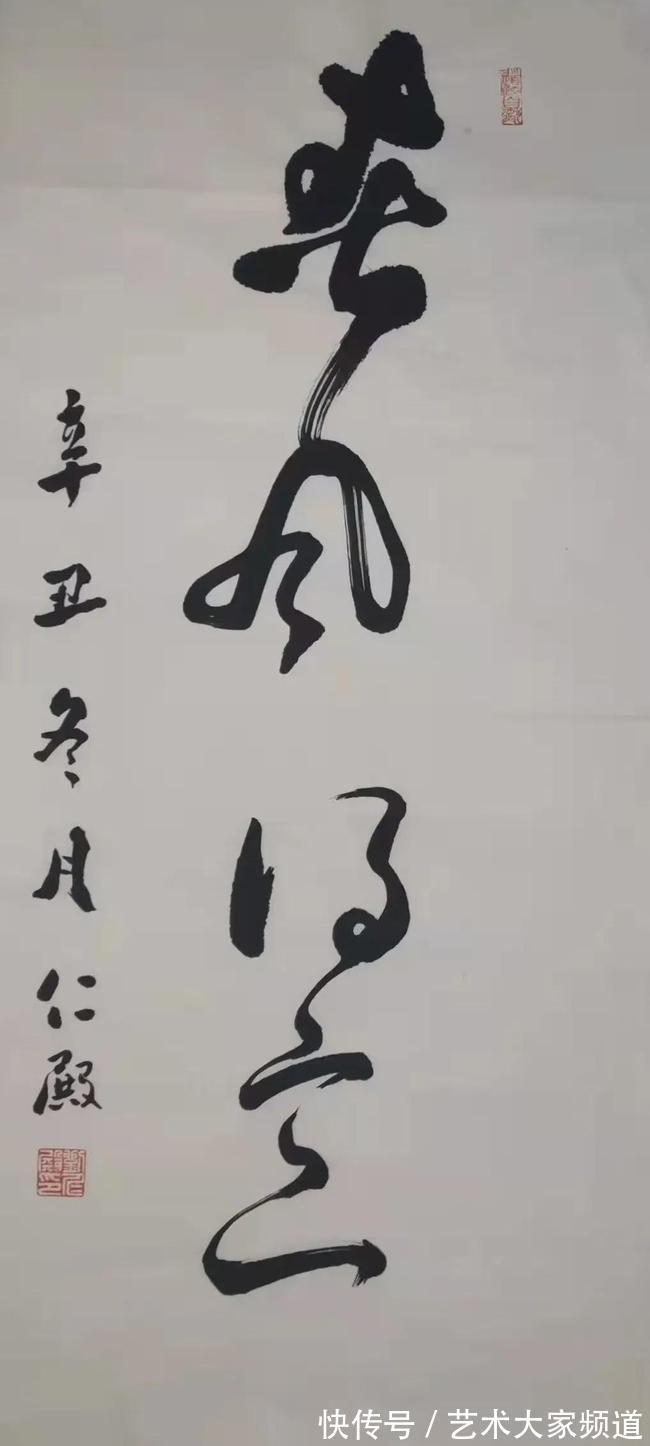 春风得意
辛丑冬月仁殿
快传号/艺术大家频道